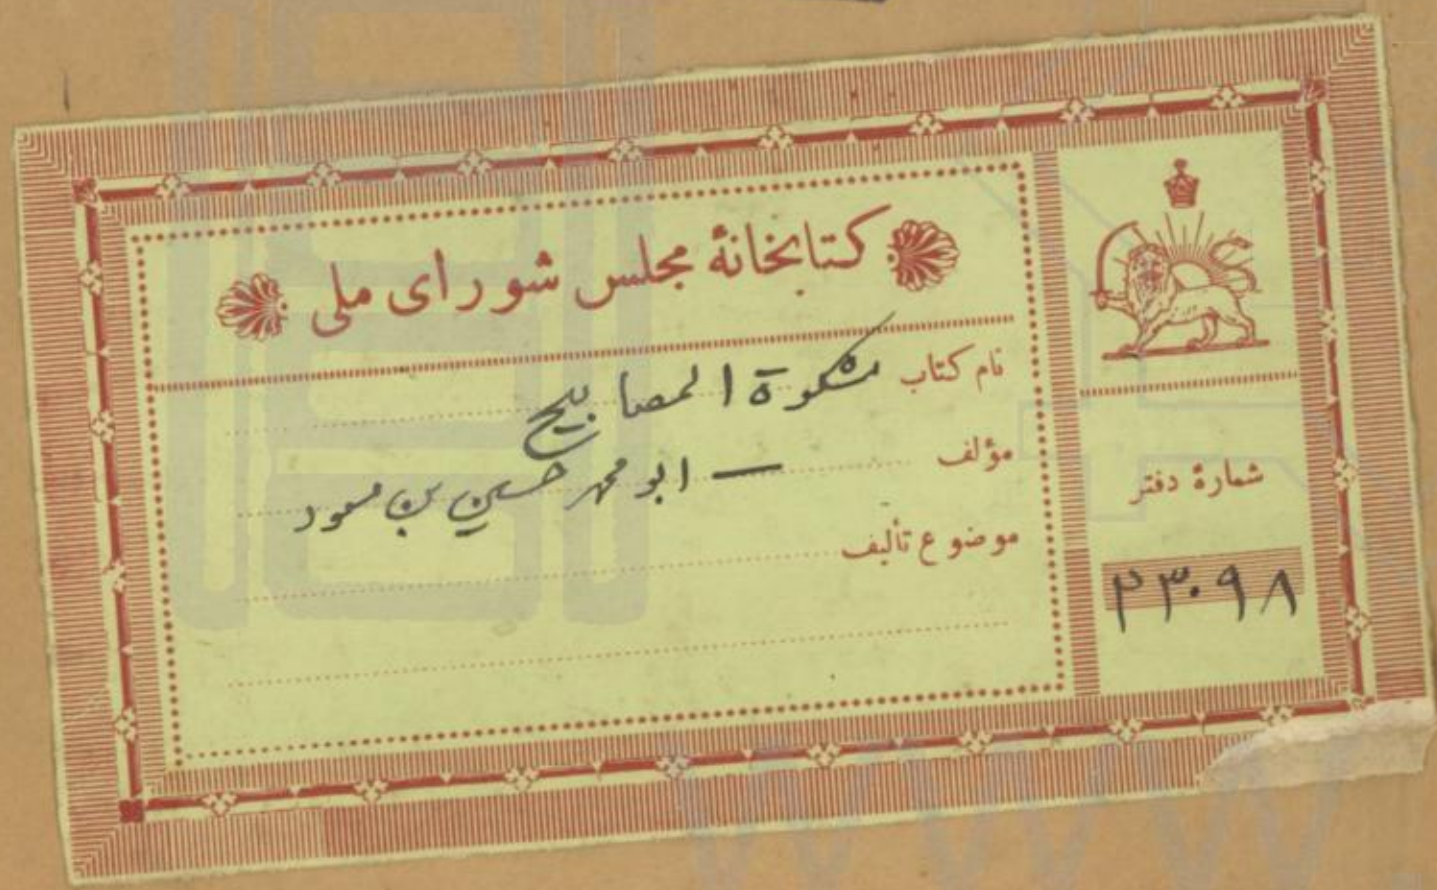 کتابخانهٔ مجلس شورای ملی
نام کتاب مشکوة المصابیح
مؤلف ابو محمد حسین بن مسعود
موضوع تألیف
شمارهٔ دفتر
۲۳۰۹۸